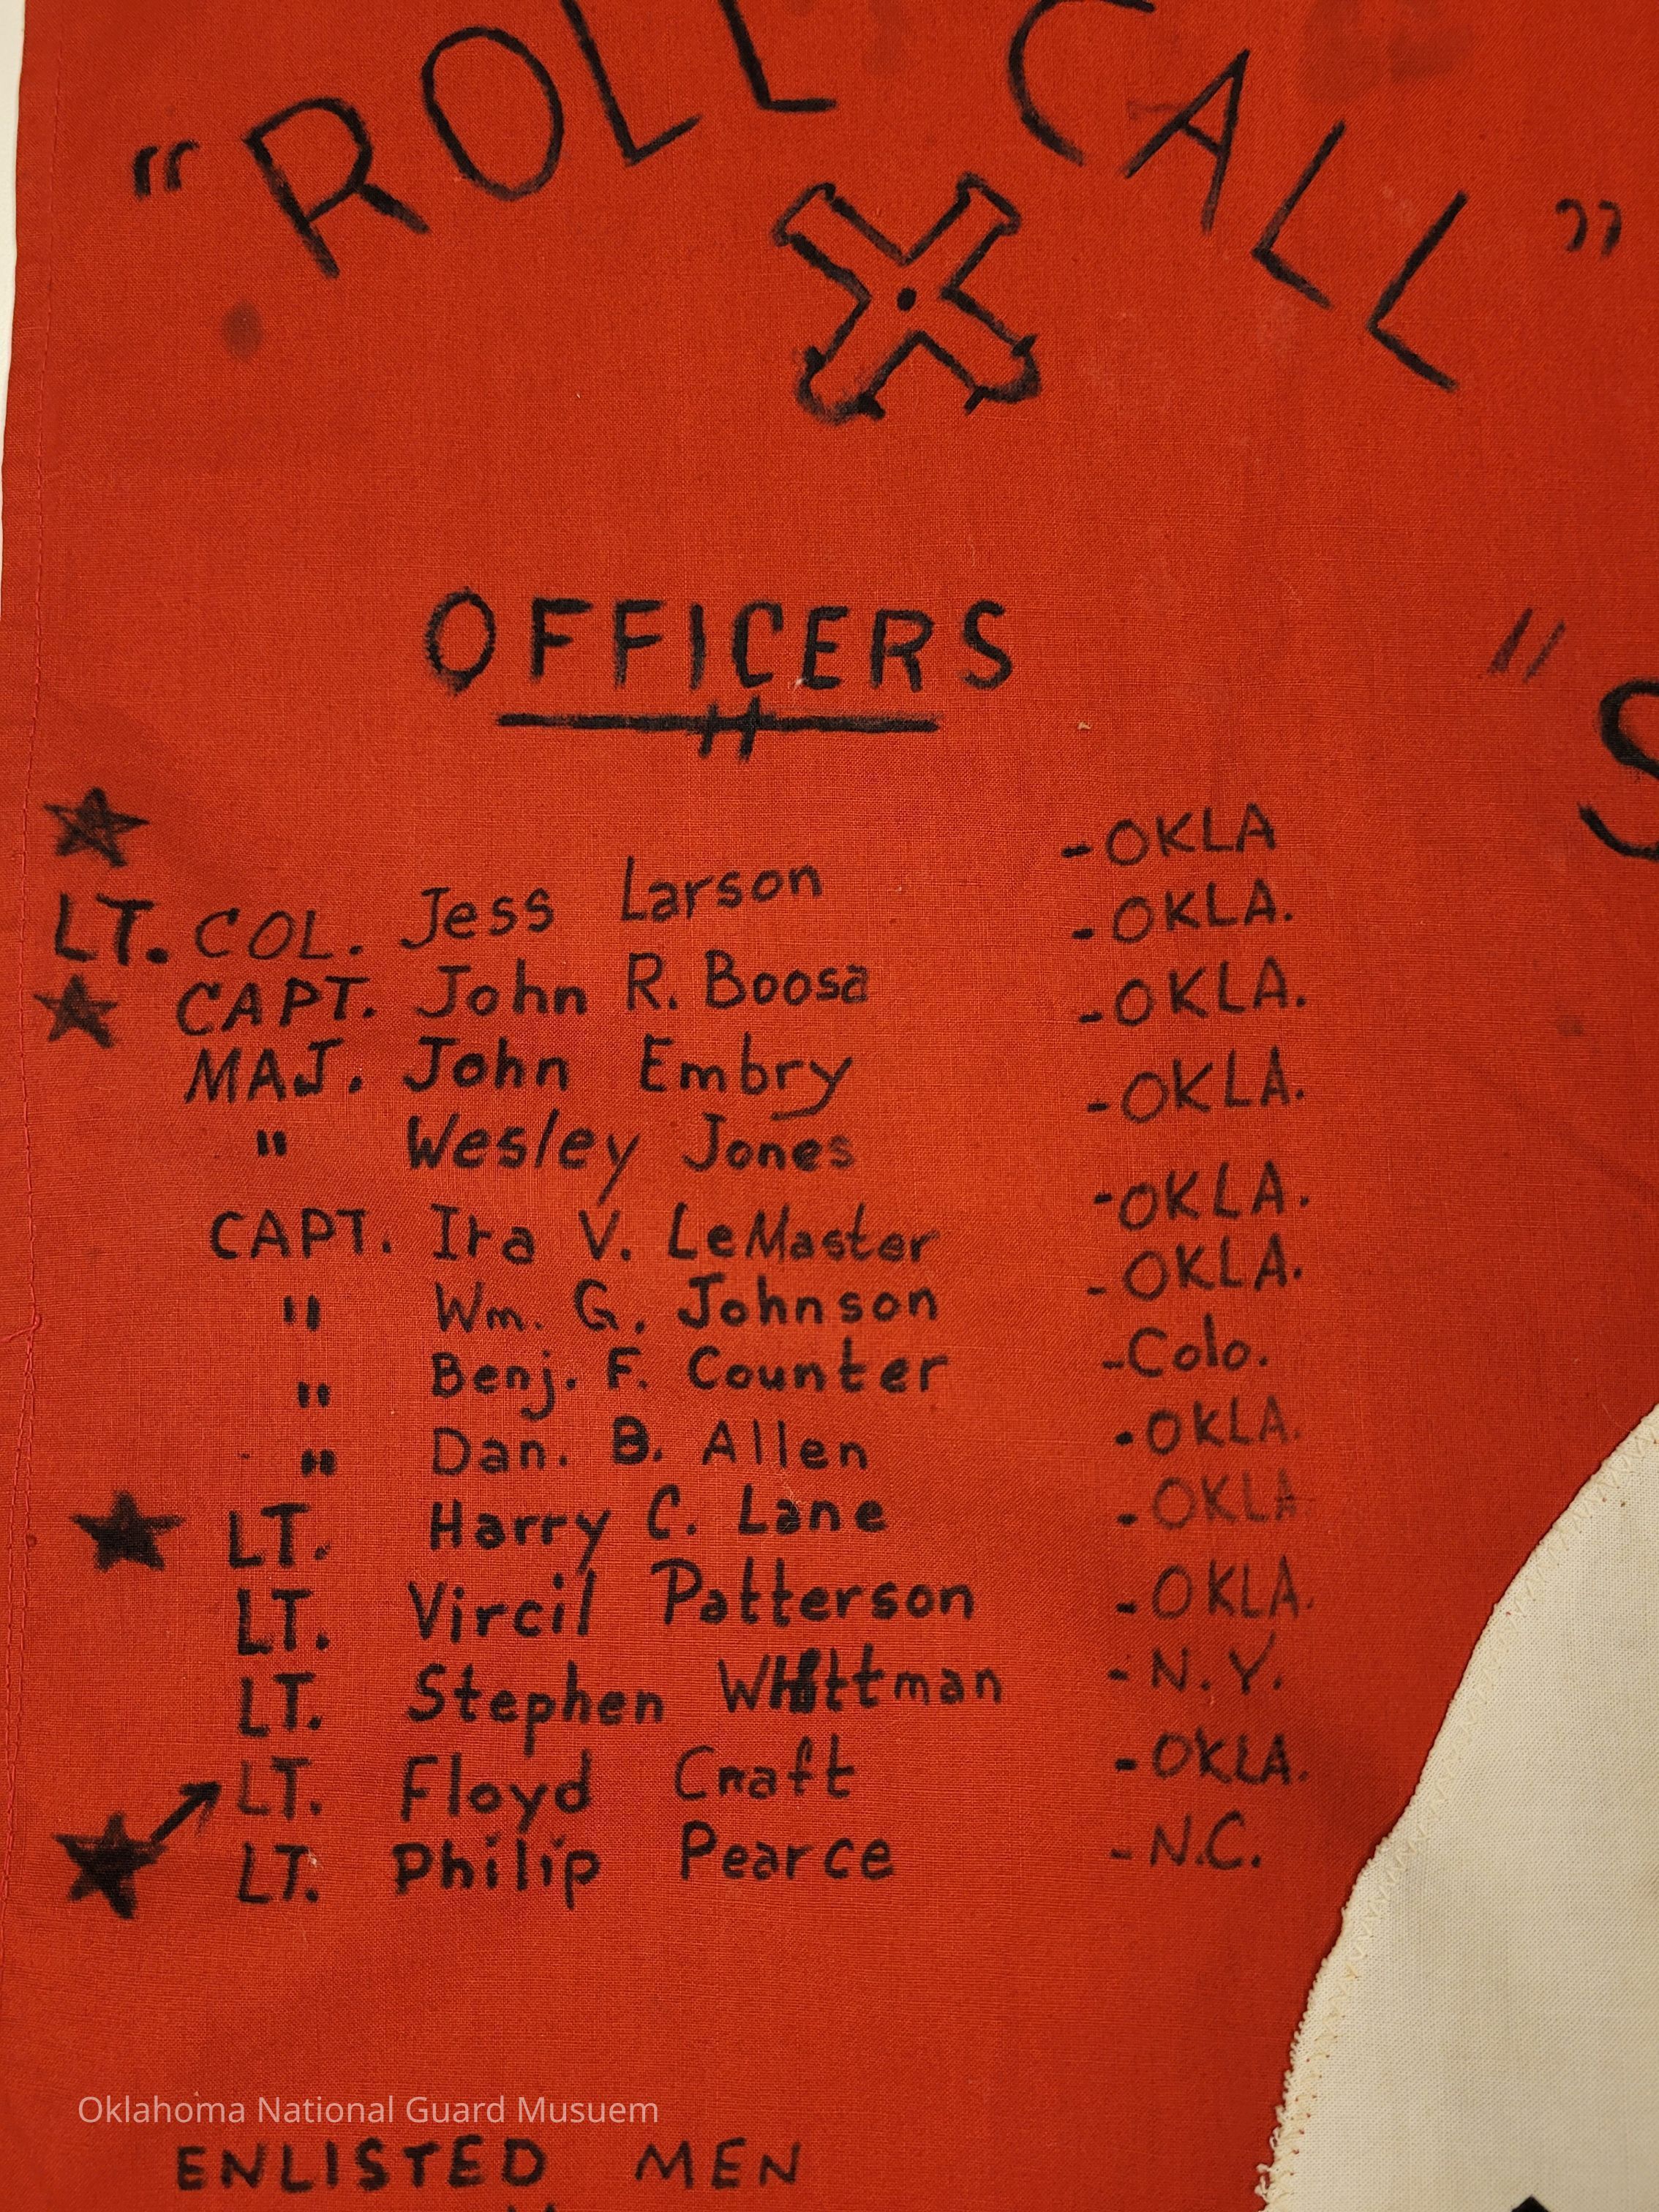 "ROLL CALL"
OFFICERS
"S
LT. COL. Jess Larson -OKLA
CAPT. John R. Boosa -OKLA.
MAJ. John Embry -OKLA.
" Wesley Jones -OKLA.
CAPT. Ira V. LeMaster -OKLA.
" Wm. G. Johnson -OKLA.
" Benj. F. Counter -Colo.
" Dan. B. Allen -OKLA.
LT. Harry C. Lane -OKLA
LT. Vircil Patterson -OKLA.
LT. Stephen Whittman -N.Y.
LT. Floyd Craft -OKLA.
LT. Philip Pearce -N.C.
Oklahoma National Guard Musuem
ENLISTED MEN